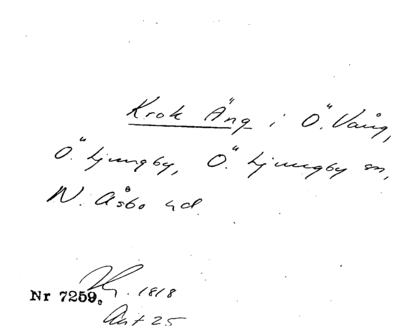 Krok Äng i Ö. Vång,
Ö Ljungby, Ö Ljungby sn,
N. Åsbo hd.
Nr 7259. 1818
Akt 25